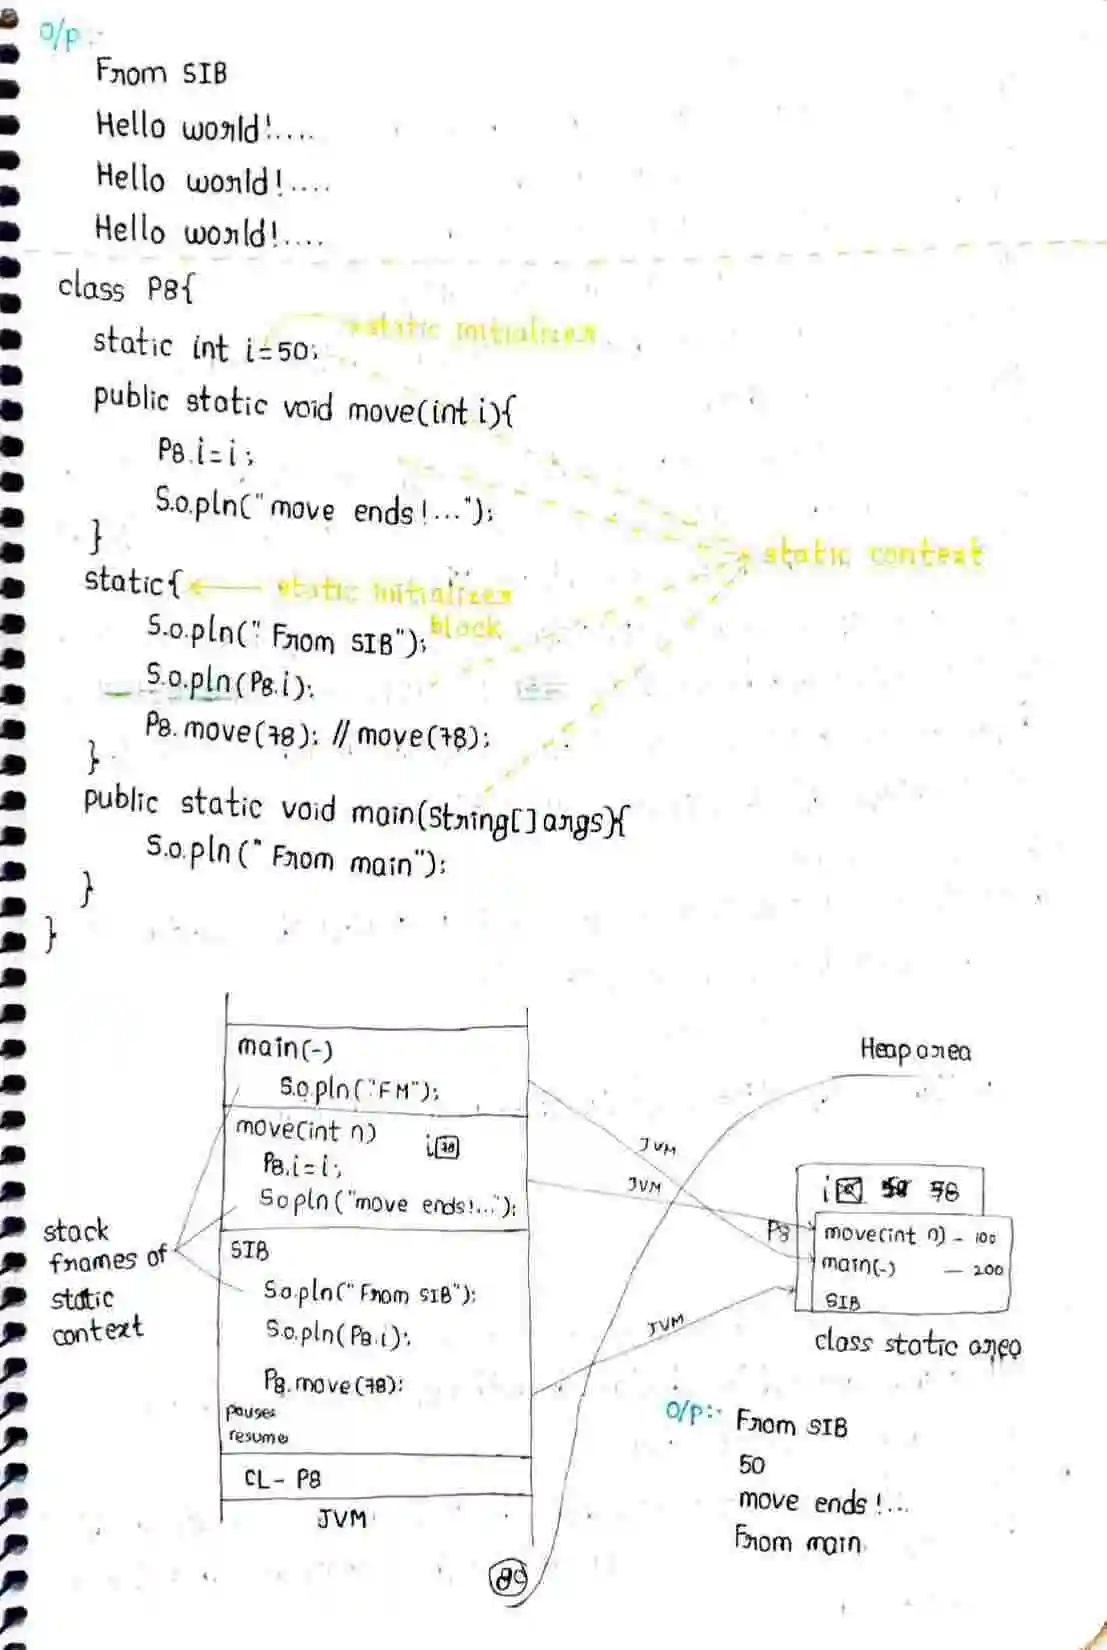 O/p :-
From SIB
Hello world!....
Hello world!....
Hello world!....
class P8{
static int i=50;
static initializer
public static void move(int i){
P8.i=i;
S.o.pln("move ends!...");
}
static context
static{
static initializer
block
S.o.pln("From SIB");
S.o.pln(P8.i);
P8.move(78); // move(78);
}
public static void main(String[] args){
S.o.pln("From main");
}
}
main(-)
S.o.pln("FM");
move(int n) i 78
P8.i=i;
S.o.pln("move ends!...");
SIB
S.o.pln("From SIB");
S.o.pln(P8.i);
P8.move(78);
pauses
resume
CL - P8
JVM
stack
frames of
static
context
Heap area
JVM
JVM
JVM
i 78
P8
move(int n) - 100
main(-) - 200
SIB
class static area
O/p:-
From SIB
50
move ends!...
From main
gc